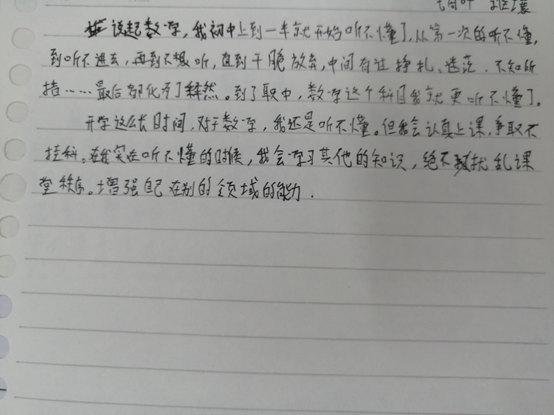 说起数学,我初中上到一半就开始听不懂了,从第一次的听不懂,
到听不进去,再到不想听,直到干脆放弃,中间有过挣扎、迷茫、不知所
措……最后都化为了释然。到了职中,数学这个科目我就更听不懂了。
开学这么长时间,对于数学,我还是听不懂。但我会认真上课,争取不
挂科。在我实在听不懂的时候,我会学习其他的知识,绝不扰乱课
堂秩序。增强自己在别的领域的能力.